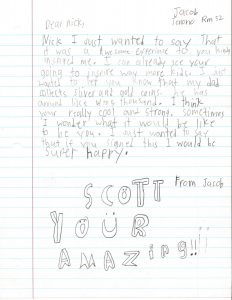 Jacob
Rm 52
Dear Nick,
Nick I Just wanted to say That
it was a Awesome Experience to you had
inspired me. I can already see your
going to inspire way more kids. I Just
wanted to let you now that my dad
collects silver and gold coins. he has
around like thousand. I think
your really cool and strong. sometimes
I wonder what it would be like
to be you. I Just wanted to say
that if you signed this I would be
super happy.
From Jacob
SCOTT
YOUR
AMAZING!!!